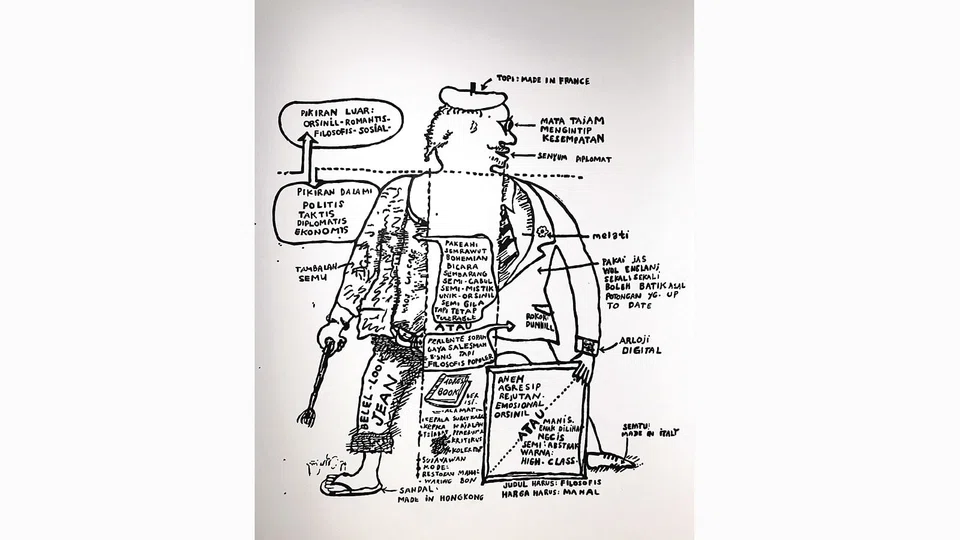 TOPI: MADE IN FRANCE
PIKIRAN LUAR:
ORSINIL-ROMANTIS-
FILOSOFIS-SOSIAL-
MATA TAJAM
MENGINTIP
KESEMPATAN
SENYUM DIPLOMAT
PIKIRAN DALAM:
POLITIS
TAKTIS
DIPLOMATIS
EKONOMIS
melati
TAMBALAN
SEMU
PAKEAN
SEMRAWUT
BOHEMIAN
BICARA
SEMBARANG
SEMI-CABUL
SEMI-MISTIK
UNIK-ORSINIL
SEMI GILA
TAPI TETAP
TOLERABLE
ATAU
PAKAI JAS
WOL
SEKALI SEKALI
BOLEH BATIK ASAL
POTONGAN YG. UP
TO DATE
ROKOK
DUNHILL
PERLENTE SOPAN
GAYA SALESMAN
BISNIS TAPI
FILOSOFIS POPULER
ARLOJI
DIGITAL
BELEL-LOOK
JEAN
BOOK
BER
ISI:
ALAMAT
KEPALA
KRITIKUS
KOLEKTOR
RESTORAN MAHAL
WARUNG BON
ANEH
AGRESIP
REJUTAN.
EMOSIONAL
ORSINIL
ATAU
MANIS.
ENAK DILIHAT
NECIS
SEMI: ABSTRAK
WARNA:
HIGH-CLASS-
SEPATU:
MADE IN ITALY
JUDUL HARUS: FILOSOFIS
HARGA HARUS: MAHAL
SANDAL:
MADE IN HONGKONG